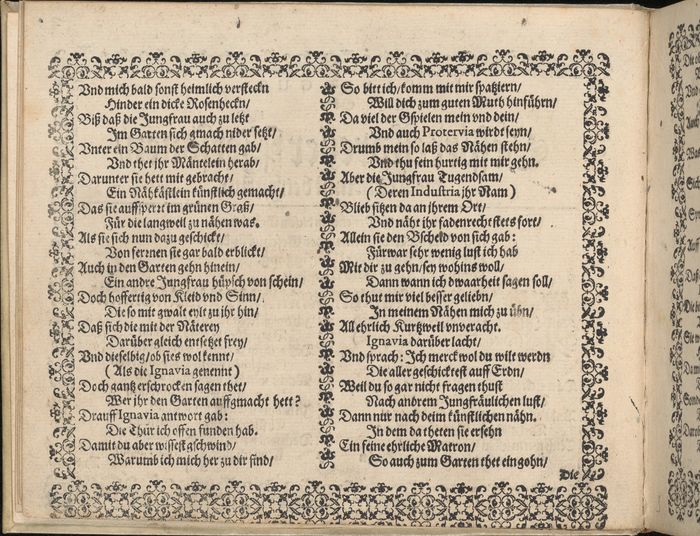 Vnd mich bald sonst heimlich versteckn
Hinder ein dicke Rosenheckn/
Biß daß die Jungfrau auch zu letzt
Im Garten sich gmach nider setzt/
Vnter ein Baum der Schatten gab/
Vnd thet jhr Mäntelein herab/
Darunter sie hett mit gebracht/
Ein Nähkästlein künstlich gemacht/
Das sie auffsperzt im grünen Graß/
Für die langweil zu nähen was.
Als sie sich nun dazu geschickt/
Von ferrnen sie gar bald erblickt/
Auch in den Garten gehn hinein/
Ein andre Jungfrau hüpsch von schein/
Doch hoffertig von Kleid vnd Sinn/
Die so mit gwalt eylt zu jhr hin/
Daß sich die mit der Näterey
Darüber gleich entsetzet frey/
Vnd dieselbig/ ob sies wol kennt/
( Als die Ignavia genennt )
Doch gantz erschrocken sagen thet/
Wer jhr den Garten auffgmacht hett?
Drauff Ignavia antwort gab:
Die Thür ich offen funden hab.
Damit du aber wissest gschwind/
Warumb ich mich her zu dir find/
So bitt ich/ komm mit mir spatziern/
Will dich zum guten Muth hinführn/
Da viel der Gspielen mein vnd dein/
Vnd auch Protervia wirdt seyn/
Drumb mein so laß das Nähen stehn/
Vnd thu fein hurtig mit mir gehn.
Aber die Jungfrau Tugendsam/
( Deren Industria jhr Nam )
Blieb sitzen da an jhrem Ort/
Vnd näht jhr fadenrecht stets fort/
Allein sie den Bscheld von sich gab:
Fürwar sehr wenig lust ich hab
Mit dir zu gehn/ sey wohins woll/
Dann wann ich dwaarheit sagen soll/
So thut mir viel besser geliebn/
In meinem Nähen mich zu übn/
All ehrlich Kurtzweil vnveracht.
Ignavia darüber lacht/
Vnd sprach: Ich merck wol du wilt werdn
Die aller geschicktest auff Erdn/
Weil du so gar nicht fragen thust
Nach andrem Jungfräulichen lust/
Dann nur nach deim künstlichen nähn.
In dem da theten sie ersehn
Ein feine ehrliche Matron/
So auch zum Garten thet eingohn/
Die